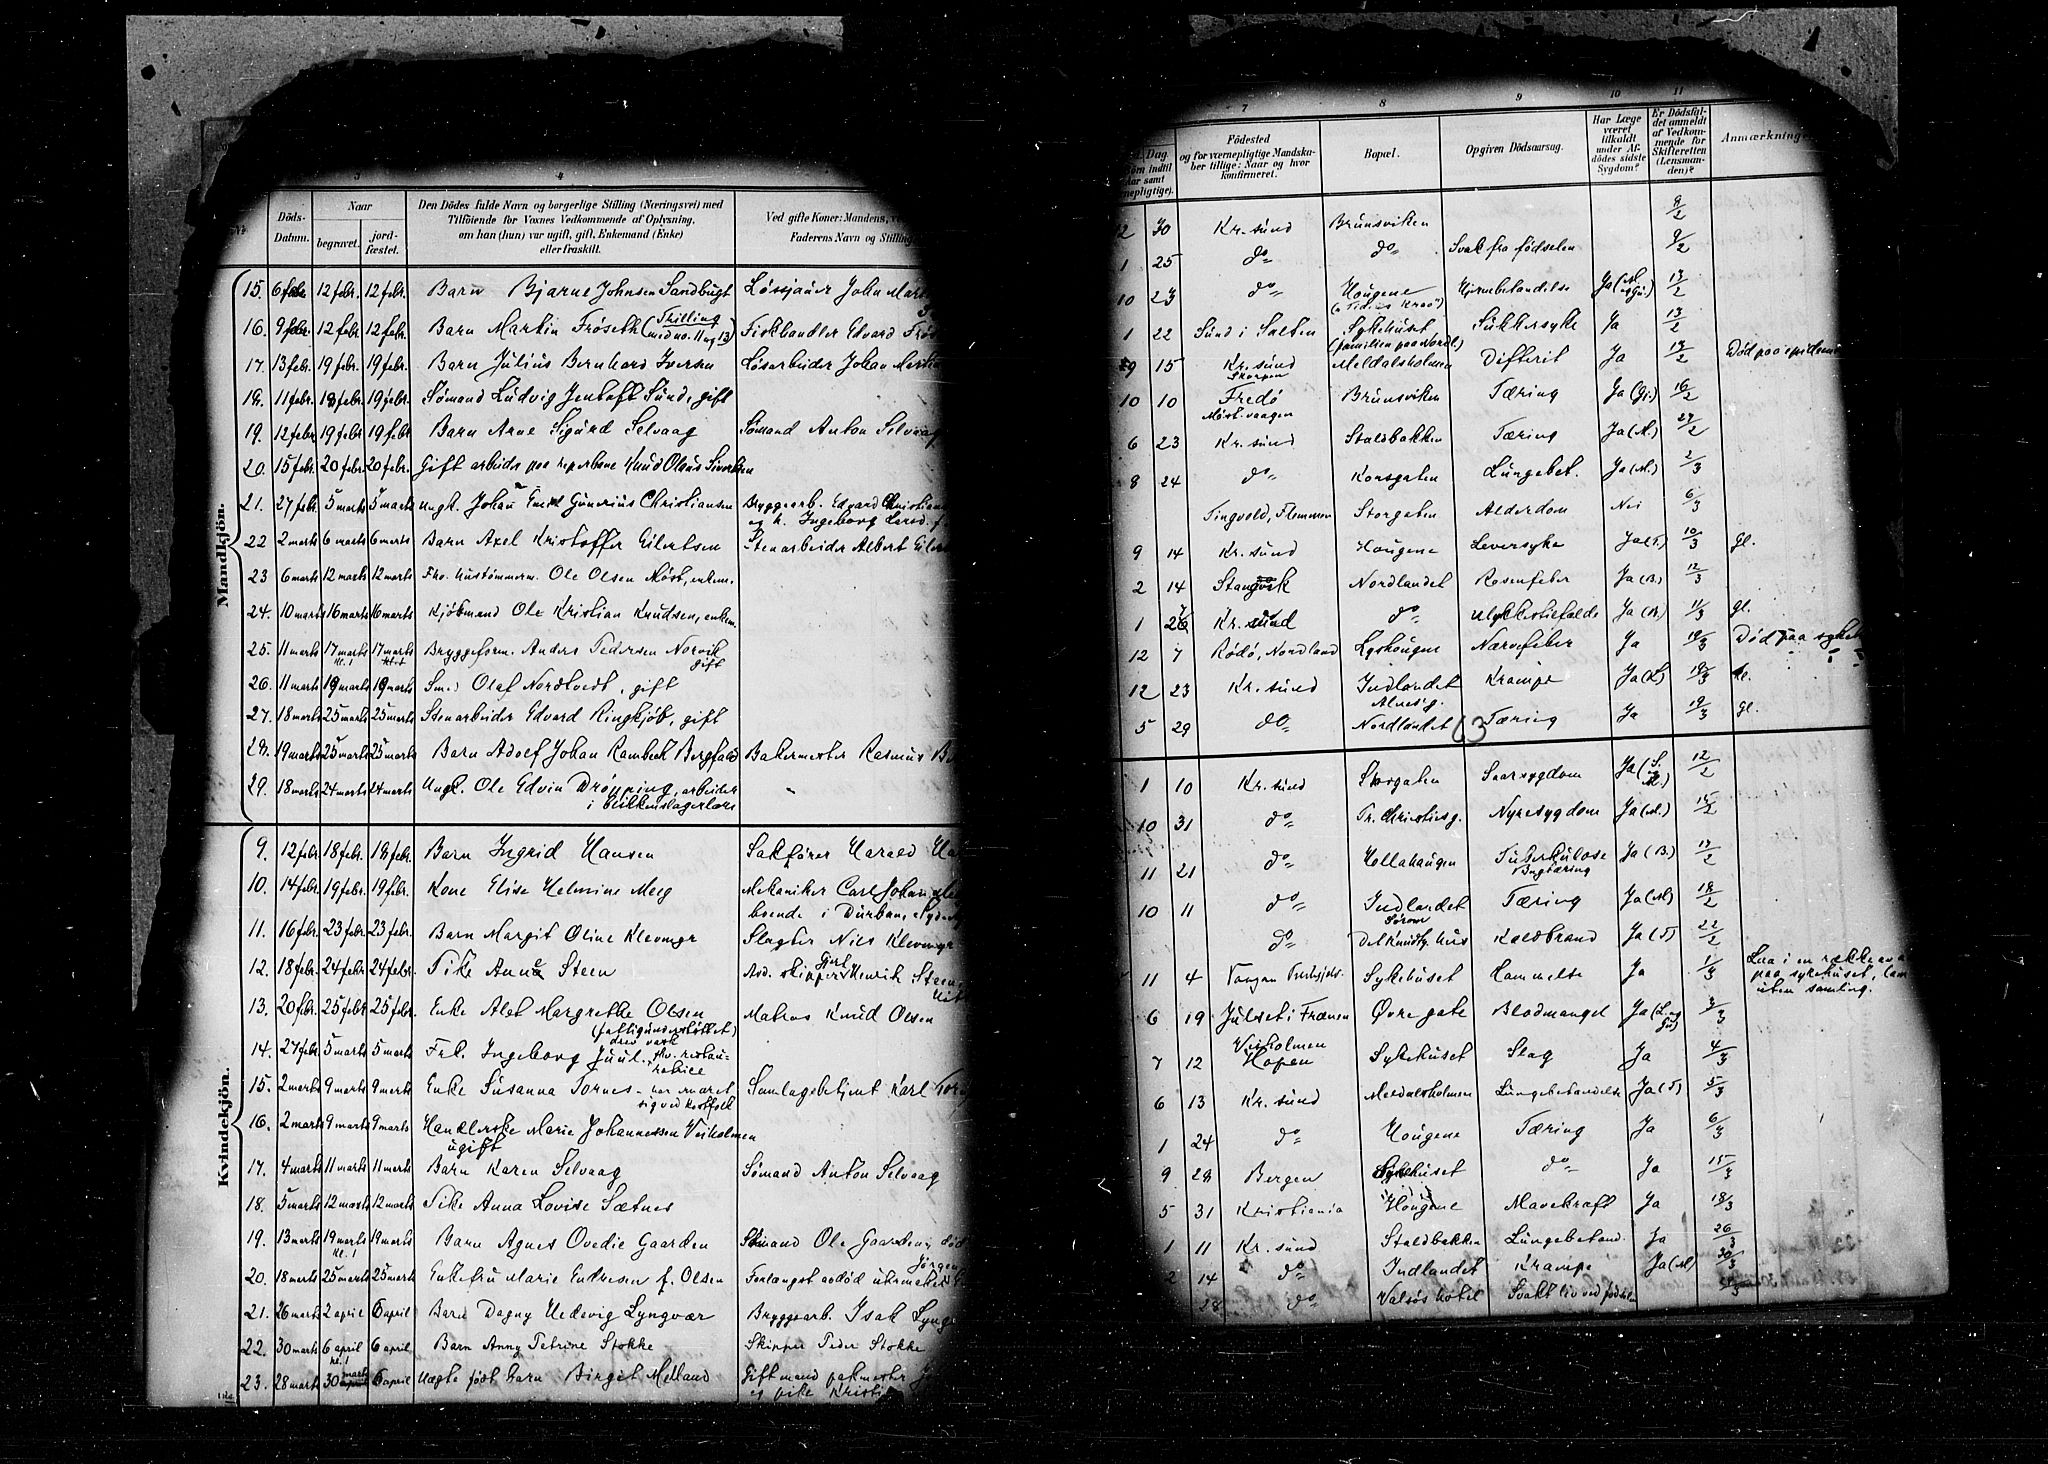 3
4
Naar
Döds-
Datum.
begravet.
jord-
fæstet.
Den Dödes fulde Navn og borgerlige Stilling (Næringsvei) med
Tilföiende for Voxnes Vedkommende af Oplysning,
om han (hun) var ugift, gift, Enkemand (Enke)
eller fraskilt.
Ved gifte Koner: Mandens,
Faderens Navn og Stilling
Mandkjön.
15. 6 febr. 12 febr. 12 febr. Barn Bjarne Johnsen Sandbugt Løssjauer John
16. 9 febr. 12 febr. 12 febr. Barn Martin Frøseth (Trilling med no. 11 og 13) Fiskhandler Edvard
17. 13 febr. 19 febr. 19 febr. Barn Julius Bernhard Iversen Løsarbeider Johan
18. 11 febr. 18 febr. 19 febr. Sømand Ludvig Jentoft Sund, gift
19. 12 febr. 19 febr. 19 febr. Barn Arne Sigurd Selvaag Sømand Anton Selvaag
20. 15 febr. 20 febr. 20 febr. Gift arbeider paa reperbane Knud Olaus Sivertsen
21. 27 febr. 5 marts 5 marts Ungk. Johan Emil Gunerius Christiansen Bryggearb. Edvard
og h. Ingeborg
22 2 marts 6 marts 6 marts Barn Axel Kristoffer Eilertsen Stenarbeider Albert
23 6 marts 12 marts 12 marts Fhv. hustømmerm. Ole Olsen Møst, enkem.
24. 10 marts 16 marts 16 marts Kjøbmand Ole Kristian Knudsen, enkem.
25. 11 marts 17 marts kl. 1 17 marts Bryggeform. Anders Pedersen Norvik
gift
26. 11 marts 19 marts 19 marts Smed Olaf Nordtvedt, gift
27. 18 marts 25 marts 25 marts Stenarbeider Edvard Ringkjøb, gift
28. 19 marts 25 marts 25 marts Barn Adolf Johan Rambeck Bergfald Bakermester Rasmus
29. 18 marts 24 marts 24 marts Ungk. Ole Edvin Drøpping, arbeider
i blikkenslagerlære
Kvindekjön.
9. 12 febr 18 febr. 18 febr. Barn Ingrid Hansen Sakfører Harald
10. 14 febr 19 febr. 19 febr. Kone Elise Helmine Meeg Mekaniker Carl Johan
boende i Durban,
11. 16 febr. 23 febr. 23 febr. Barn Margit Oline Klevmyr Slagter Nils Klevmyr
12. 18 febr. 24 febr. 24 febr. Pike Anne Steen Avd. skipper Henrik Steen
13. 20 febr. 25 febr. 25 febr. Enke Alet Margrethe Olsen Matros Knud Olsen
(fattigunderstøttet)
14. 27 febr 5 marts 5 marts Frk. Ingeborg Juul.
15. 2 marts 9 marts 9 marts Enke Susanna Tornes - Samlagsbetjent Karl
16. 2 marts 9 marts 9 marts Handlerske Marie Johannessen Veiholmen
ugift
17. 4 marts 11 marts 11 marts Barn Karen Selvaag Sømand Anton Selvaag
18. 5 marts 12 marts 12 marts Pike Anna Lovise Sætnes
19. 13 marts 19 marts kl. 1 19 marts Barn Agnes Ovedie Gaarden Sømand Ole Gaarden, død
20. 18 marts 25 marts 25 marts Enkefru Marie Endresen f. Olsen Forlængst avdød urmaker
21. 26 marts 2 april 6 april Barn Dagny Hedevig Lyngvær Bryggearb. Isak
22. 30 marts 6 april 6 april Barn Anny Petrine Stokke Skipper Peder Stokke
23. 28 marts 30 marts 6 april Uægte født barn Birgit Melland Gift mand pakmester
og pike
7
8
9
10
11
Dag
Födested
og for værnepligtige Mandska-
ber tillige: Naar og hvor
konfirmeret.
Bopæl.
Opgiven Dödsaarsag.
Har Læge
været
tilkaldt
under Af-
dödes sidste
Sygdom?
Er Dödsfal-
det anmeldt
af Vedkom-
mende for
Skifteretten
(Lensman-
den)?
Anmærkninger
12 30 Kr.sund Brunsviken 8/2
1 25 do do Svak fra fødselen 9/2
10 23 do Hougene Hjernebetændelse Ja 13/2
1 22 Sund i Salten Sykehuset Sukkersyke Ja 13/2
(familien paa Nordl.)
9 15 Kr.sund Meldalsholmen Difterit Ja 13/2 Død paa
10 10 Fredø Brunsviken Tæring Ja (Gr.) 16/2
6 23 Kr.sund Staldbakken Tæring Ja (M.) 27/2
8 24 do Korsgaten Lungebet. Ja (M.) 2/3
Tingvold, Flemmen Storgaten Alderdom Nei 6/3
9 14 Kr.sund Hougene Leversyke Ja (T.) 10/3 gl.
2 14 Stangvik Nordlandet Rosenfeber Ja (B.) 12/3
1 26 Kr.sund do Ulykkestilfælde Ja (B.) 11/3 gl.
12 7 Rødø, Nordland Lyshougen Nervefeber Ja 18/3 Død paa
12 23 Kr.sund Indlandet Krampe Ja (L) 18/3 gl.
5 29 do Nordlandet Tæring Ja 19/3 gl.
63
1 10 Kr.sund Storgaten Saarsygdom Ja 12/2
10 31 do Fr. Christiesg. Nyresygdom Ja (M.) 15/2
11 21 do Hollahaugen Tuberkulose Ja (B.) 17/2
10 11 do Indlandet Tæring Ja (M) 18/2
do Koldbrand Ja (T) 22/2
11 4 Sykehuset Ja 1/3 Laa i en række av
paa sykehuset,
uten samling.
6 19 Julset i Frænen Øvregate Blodmangel Ja 3/3
7 12 Veiholmen
Hopen Sykehuset Slag Ja 4/3
6 13 Kr.sund Meldalsholmen Lungebetændelse Ja (T) 5/3
1 24 do Hougene Tæring Ja 6/3
9 28 Bergen Sykehuset do Ja 15/3
5 31 Kristiania Hougene Mavekræft Ja 18/3
1 11 Kr.sund Staldbakken Lungebetænd. Ja 26/3
2 14 do Indlandet Krampe Ja (M) 30/3
28 do Valsøs hotel Svakt liv ved fødselen